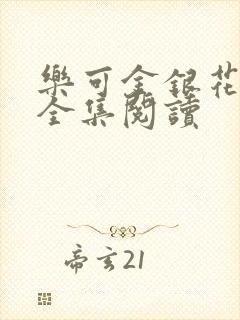 樂可金銀花
全集閱讀
帝玄21